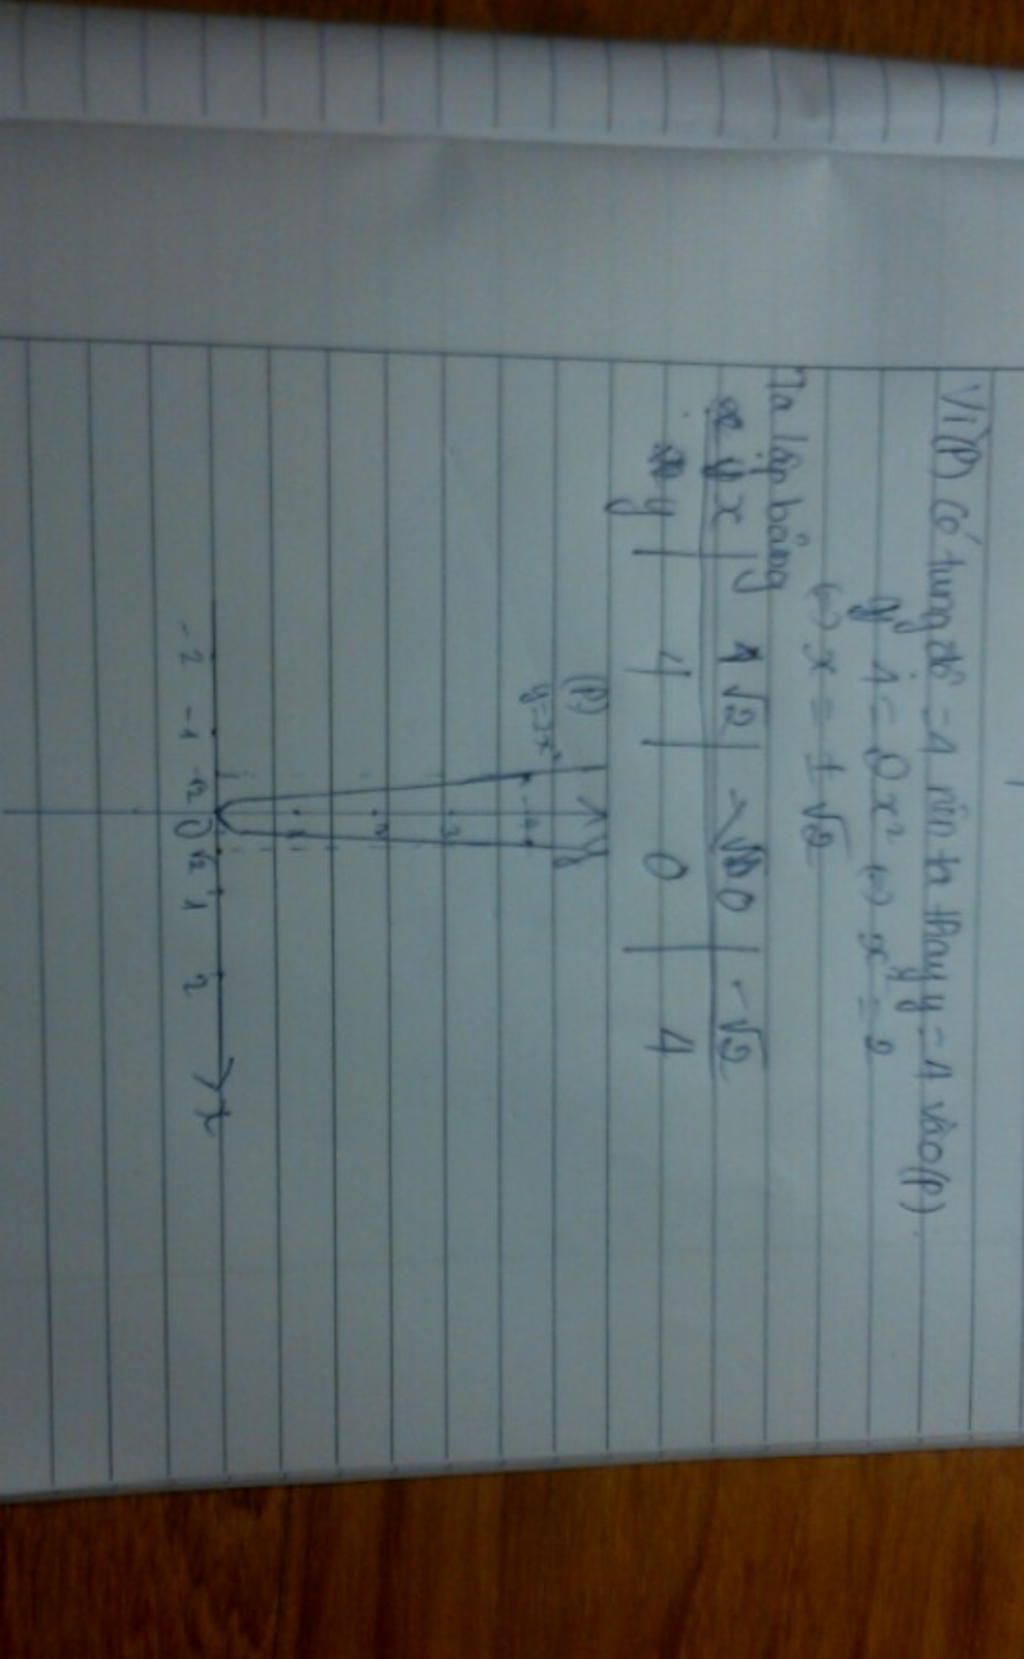 Vì (P) có tung độ = 4 nên ta thay y = 4 vào (P)
4 = 2x² <=> x² = 2
<=> x = ± √2
Ta lập bảng
x | √2 | 0 | -√2
y | 4 | 0 | 4
(P)
y
y=2x²
4
3
2
1
-2 -1 -√2 0 √2 1 2 x